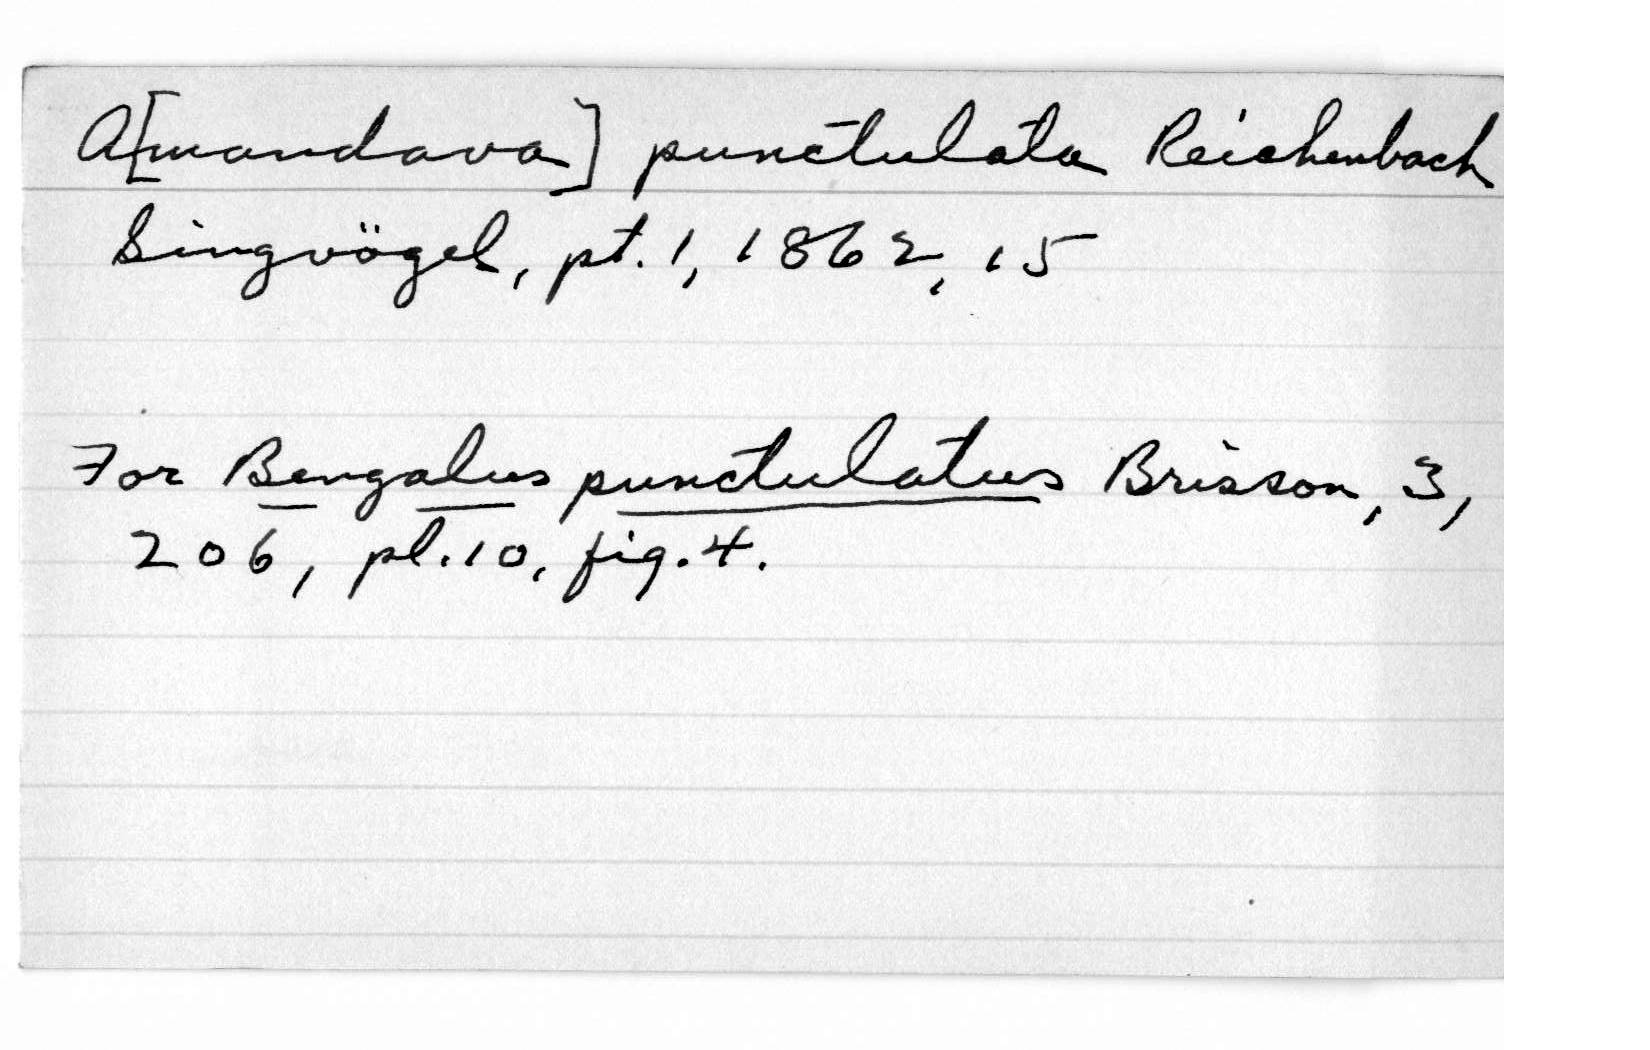 A[mandava] punctulata Reichenbach
Singvögel, pt. 1, 1862, 15
For Bengalus punctulatus Brisson, 3,
206, pl. 10, fig. 4.